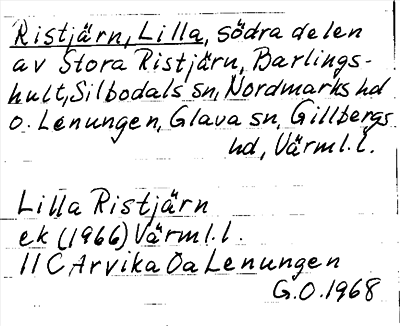 Ristjärn, Lilla, södra delen
av Stora Ristjärn, Barlings-
hult, Silbodals sn, Nordmarks hd
o. Lenungen, Glava sn, Gillbergs
hd, Värml.l.
Lilla Ristjärn
ek (1966) Värml.l.
11 C Arvika Öa Lenungen
G.O. 1968